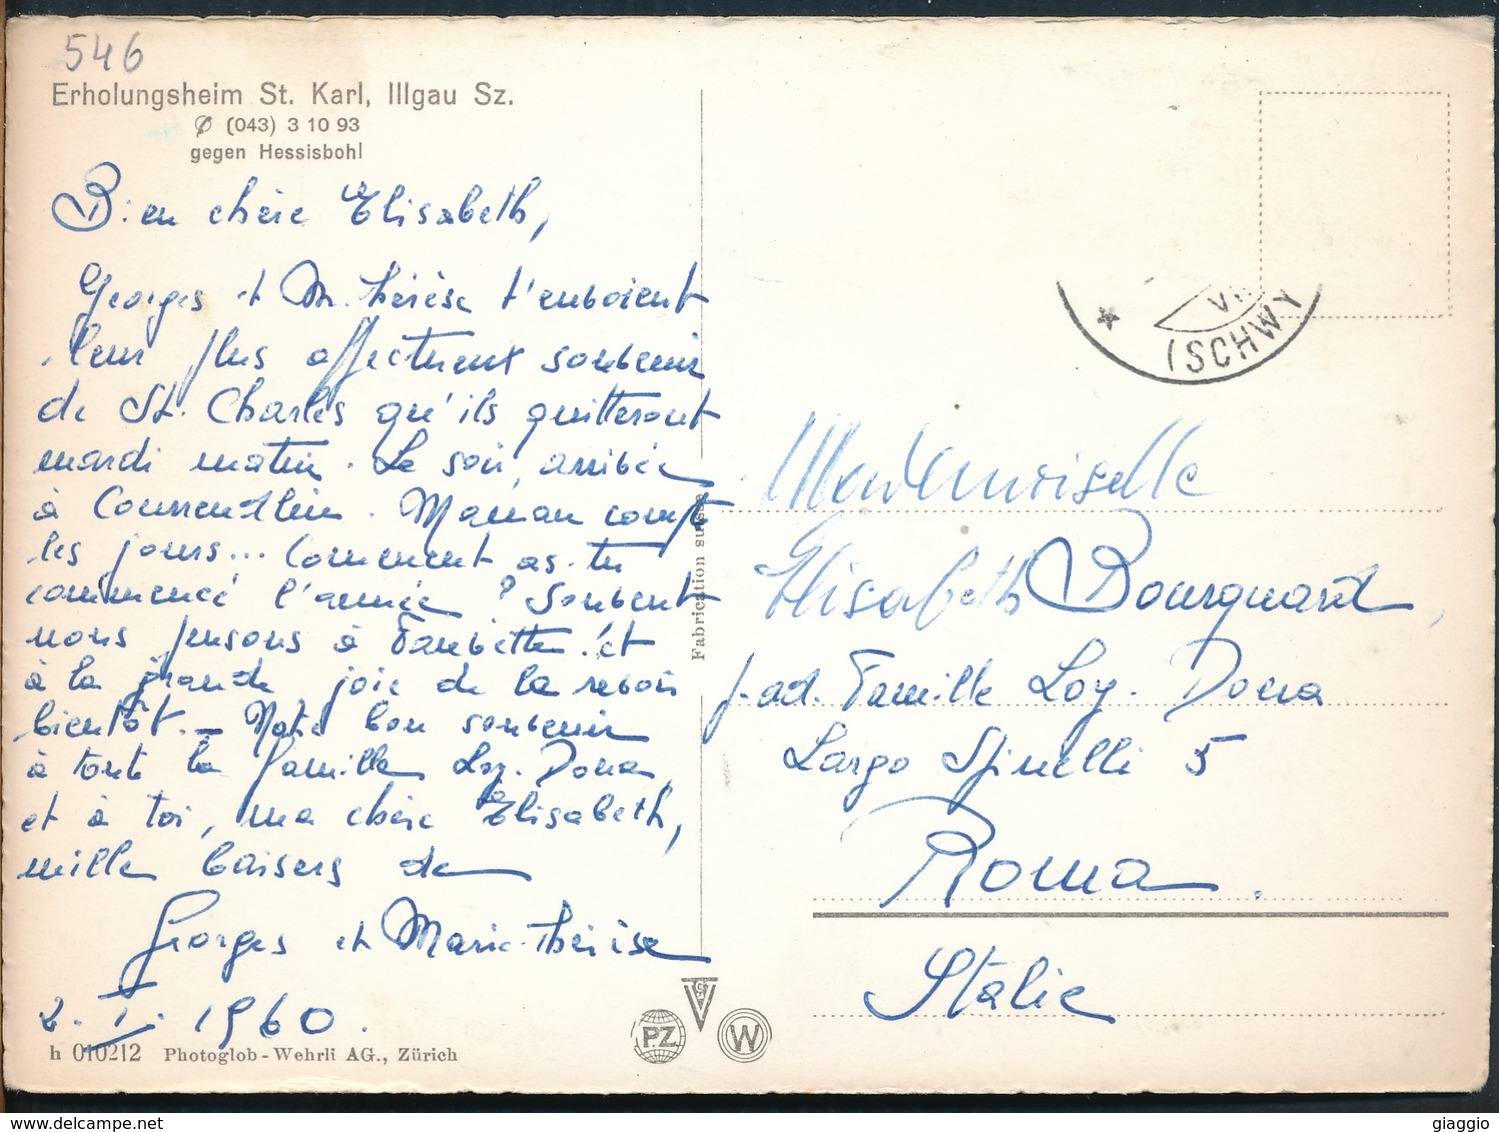 546
Erholungsheim St. Karl, Illgau Sz.
✆ (043) 3 10 93
gegen Hessisbohl
Bien chère Elisabeth,
Georges et M. Thérèse t'envoient
leur plus affectueux souvenir
de St. Charles qu'ils quitteront
mardi matin. Le soir, arrivée
à Courrendlin. Marian compte
les jours... Comment as-tu
commencé l'année ? Souvent
nous pensons à Fanvette! et
à la grande joie de la revoir
bientôt. – Notre bon souvenir
à toute la famille Loy. Dona,
et à toi, ma chère Elisabeth,
mille baisers de
Georges et Marie-Thérèse
2. I. 1960.
h 010212 Photoglob-Wehrli AG., Zürich
Fabrication suisse
PZ
W
* VII
(SCHWY
Mademoiselle
Elisabeth Bourquard,
p. ad. Famille Loy. Dona
Largo Spinelli 5
Roma.
Italie
giaggio